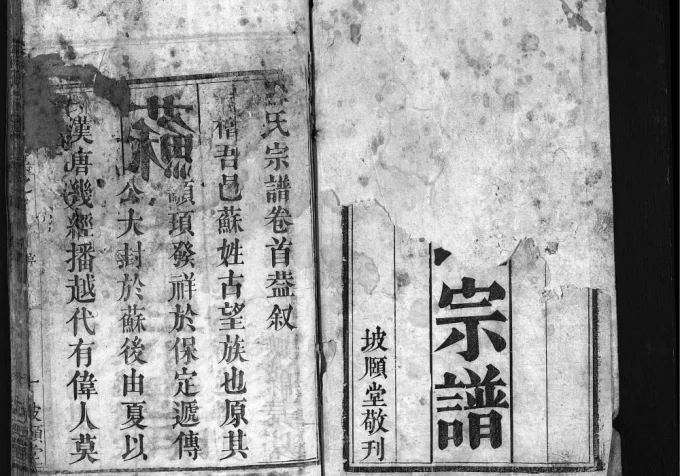 宗譜
坡願堂敬刊
氏宗譜卷首叙
稽吾邑蘇姓古望族也原其
顓頊發祥於保定遞傳
公大封於蘇後由夏以
漢唐幾經播越代有偉人莫
蘇
一 坡願堂